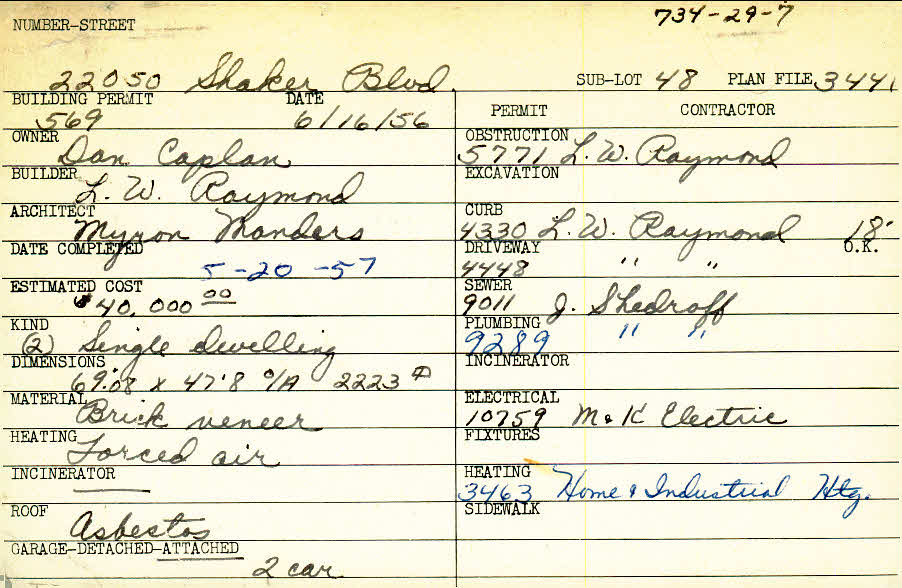 734-29-7
NUMBER-STREET
22050 Shaker Blvd. SUB-LOT 48 PLAN FILE 3441
BUILDING PERMIT DATE
569 6/16/56
OWNER
Dan Caplan
BUILDER
L. W. Raymond
ARCHITECT
Myron Manders
DATE COMPLETED
5-20-57
ESTIMATED COST
$40,000 00
KIND
(2) Single dwelling
DIMENSIONS
69'08 x 47'8 O/A 2223 ▱
MATERIAL
Brick veneer
HEATING
Forced air
INCINERATOR
ROOF
Asbestos
GARAGE-DETACHED-ATTACHED
2 car
PERMIT CONTRACTOR
OBSTRUCTION
5771 L. W. Raymond
EXCAVATION
CURB
4330 L. W. Raymond 18'
DRIVEWAY O.K.
4448 " "
SEWER
9011 J. Shedroff
PLUMBING
9289 " "
INCINERATOR
ELECTRICAL
10759 M & K Electric
FIXTURES
HEATING
3463 Home & Industrial Htg.
SIDEWALK